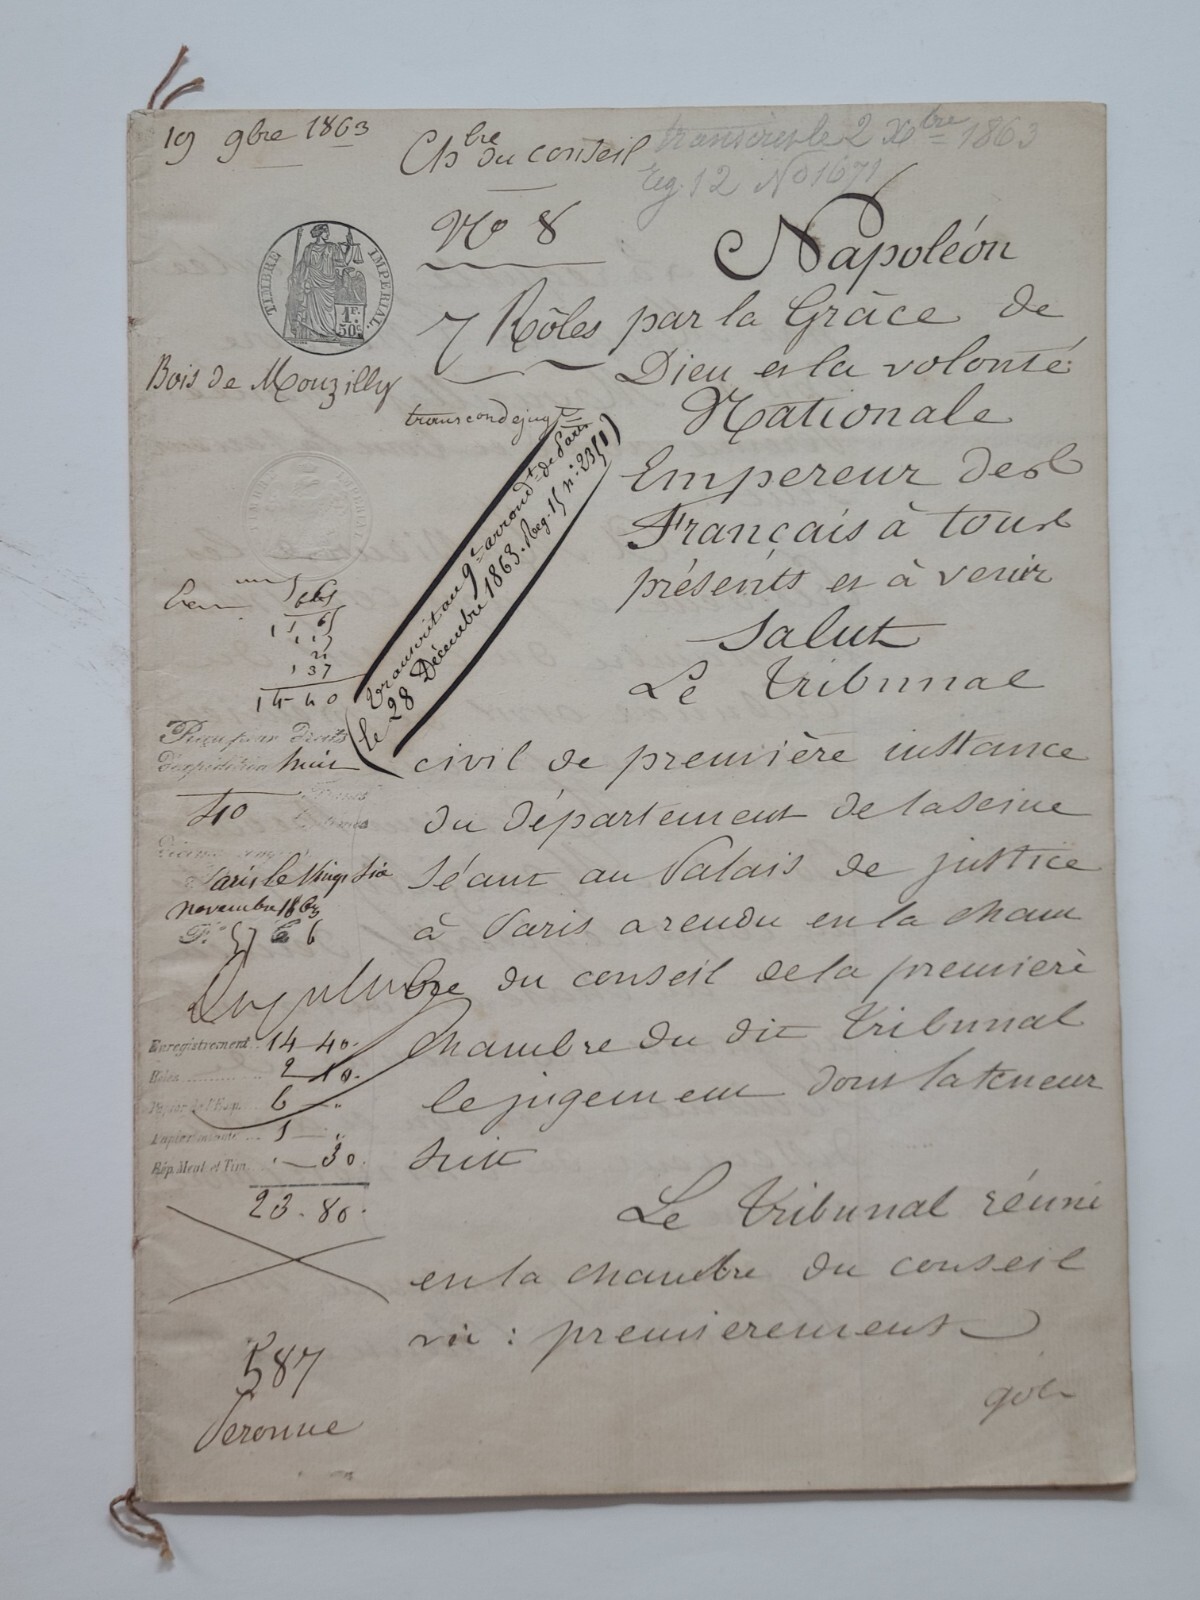 19 9bre 1863
Chbre du conseil
transcrit le 2 Xbre 1863
Reg. 12 No 1671
No 8
TIMBRE IMPERIAL.
1F. 50c
7 Rôles
Bois de Mouzilly
Napoléon
par la Grâce de
Dieu et la volonté
Nationale
Empereur des
Français à tous
présents et à venir
Salut
Le Tribunal
civil de première instance
du département de la Seine
séant au Palais de justice
à Paris a rendu en la cham
bre du conseil de la première
chambre du dit Tribunal
le jugement dont la teneur
suit
Le Tribunal réuni
en la chambre du conseil
vu : premièrement
transcon de jugt
(transcrit au 9e arrondt de Paris
le 28 Décembre 1863. Reg. 15 no 2351)
137
14-40
Reçu pour Droits
d'expédition huit
40
Paris le Vingt six
novembre 1863
Enregistrement 14-40.
2-10.
6
1
30.
23.80.
587
Peronne